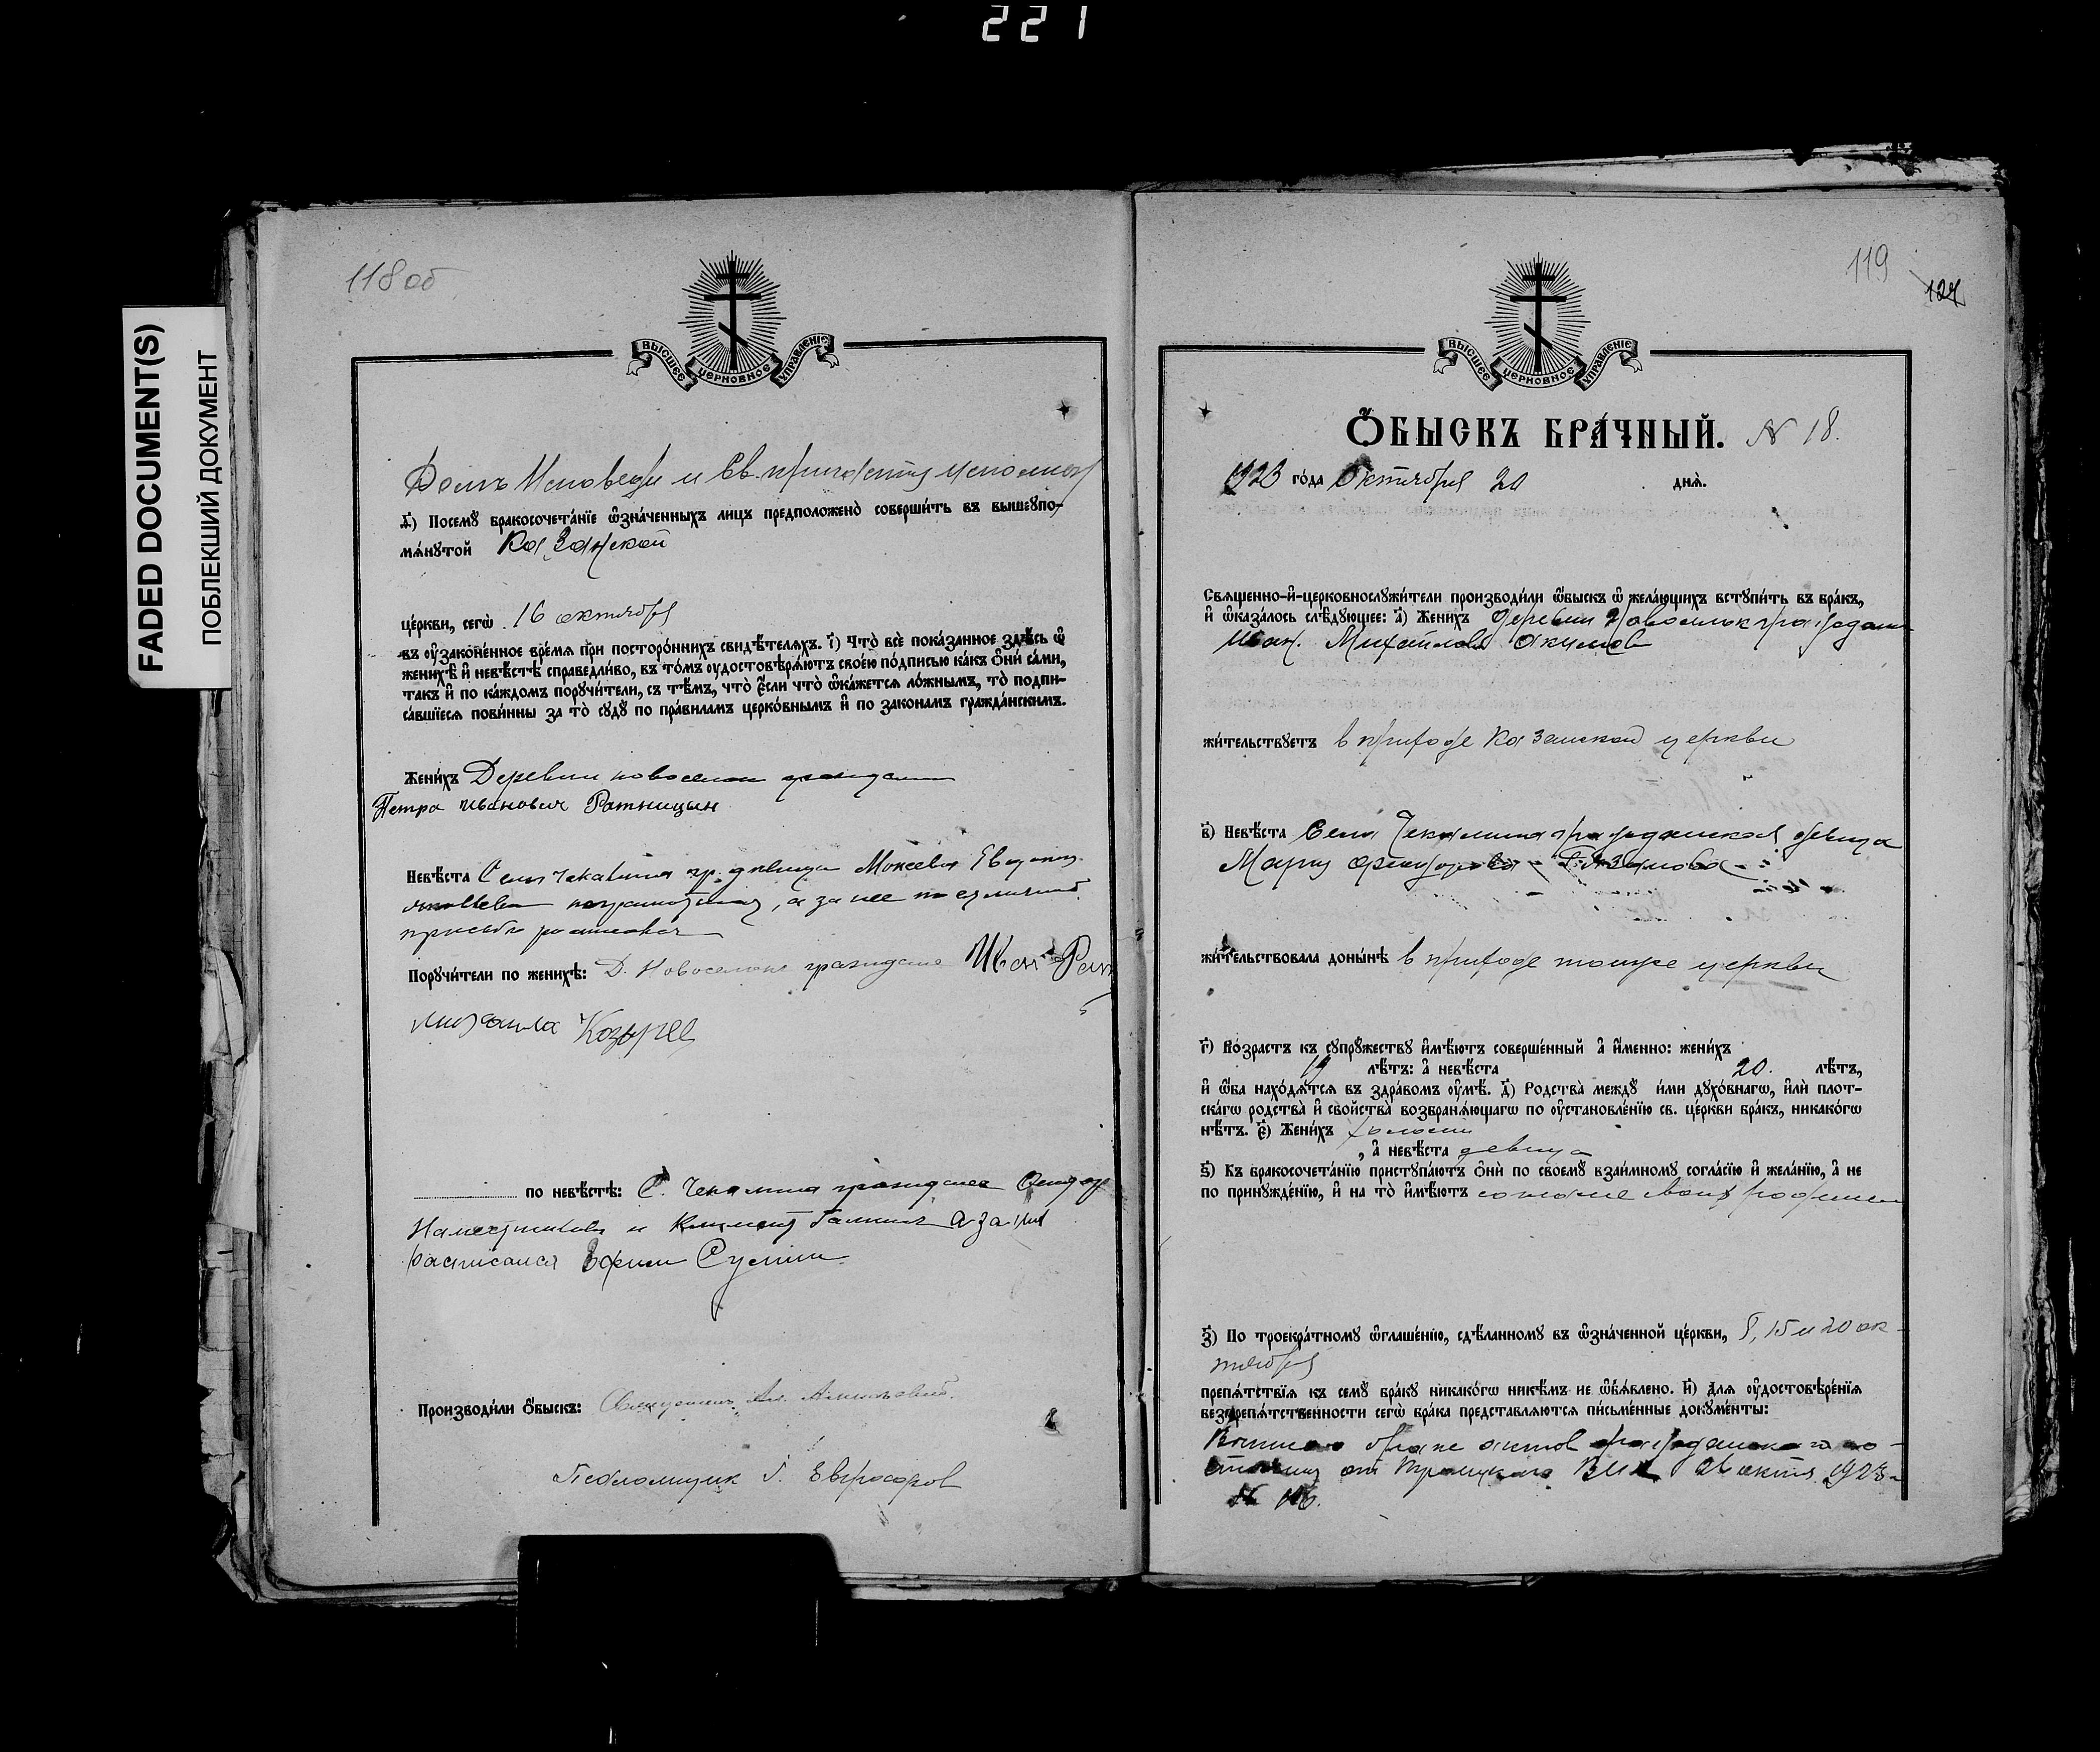 221
FADED DOCUMENT(S)
ПОБЛЕКШИЙ ДОКУМЕНТ
118 об
ВЫСШЕЕ ЦЕРКОВНОЕ УПРАВЛЕНІЕ
Долгъ Исповеди и Св. причастія исполн
д҃) Посемꙋ̀ бракосочета́нїе ѡ҆зна́ченныхъ лицъ предположено̀ соверши́ть въ вышеупо-
мѧ́нꙋтой Казанской
це́ркви, сегѡ̀ 16 октября
въ ᲂу҆зако́не́нное вре́мѧ при посторо́ннихъ свидѣ́телѧхъ. і҃) Что̀ всѐ пока́занное здѣ́сь ѡ҆
женихѣ̀ и҆ невѣ́стѣ справедли́во, въ то́мъ ᲂу҆достовѣрѧ́ютъ свое́ю по́дписью ка́къ ѻ҆нѝ са́ми,
та́къ и҆ по ка́ждомъ порꙋчи́тели, съ тѣ́мъ, что̀ є҆́сли что̀ ѡ҆ка́жетсѧ ло́жнымъ, то̀ подпи-
са́вшїесѧ пови́нны за то̀ сꙋдꙋ̀ по пра́виламъ церко́внымъ и҆ по зако́намъ гражда́нскимъ.
Жени́хъ Деревни новоселок гражданин
Петра Иванович Ратницын
Невѣ́ста Села Чекалина гр. девица Евдокия
неграмотная, а за нее по ея личной
просьбе
Порꙋчи́тели по женихѣ̀: Д. Новоселок граждане Иван
Михаила Козырев
по невѣ́стѣ: С. Чекалина граждане
Наместников и Климент а за них
расписался Ефим
Производи́ли ѻ҆́быскъ: Священникъ
Псаломщик Г. Евфросоров
119
124
ВЫСШЕЕ ЦЕРКОВНОЕ УПРАВЛЕНІЕ
Ѻ҆́БЫСКЪ БРА́ЧНЫЙ. № 18.
1923 го́да Октября 20 днѧ̀.
Свѧще́нно-и҆-церковнослꙋжи́тели производи́ли ѻ҆́быскъ ѡ҆ жела́ющихъ встꙋпи́ть въ бра́къ,
и҆ ѡ҆каза́лось слѣ́дꙋющее: а҃) Жени́хъ деревни Новоселок граждан
Иван. Михайлов Акимов
жи́тельствꙋетъ в приходе Казанской церкви
в҃) Невѣ́ста Села Чекалина гражданская девица
Мария
жи́тельствовала доны́нѣ в приходе тойже церкви
г҃) Во́зрастъ къ сꙋпрꙋ́жествꙋ и҆мѣ́ютъ соверше́нный а҆ и҆́менно: жени́хъ
19 лѣ́тъ: а҆ невѣ́ста 20. лѣ́тъ,
и҆ ѻ҆́ба нахо́дѧтсѧ въ здра́вомъ ᲂу҆мѣ̀. д҃) Родства̀ междꙋ̀ и҆́ми дꙋхо́внагѡ, и҆лѝ плот-
ска́гѡ родства̀ и҆ сво́йства возбранѧ́ющагѡ по ᲂу҆становле́нїю св. це́ркви бра́къ, никако́гѡ
нѣ́тъ. є҃) Жени́хъ холост
, а҆ невѣ́ста девица
ѕ҃) Къ бракосочета́нїю пристꙋпа́ютъ ѻ҆нѝ по своемꙋ̀ взаи́мномꙋ согла́сїю и҆ жела́нїю, а҆ не
по принꙋжде́нїю, и҆ на то̀ и҆мѣ́ютъ согласие своих родител
з҃) По троекра́тномꙋ ѡ҆глаше́нїю, сдѣ́ланномꙋ въ ѡ҆зна́ченной це́ркви, 8, 15 и 20 ок-
тября
препѧ́тствїѧ къ семꙋ̀ бра́кꙋ никако́гѡ никѣ́мъ не ѡ҆б̾ѧ́влено. и҃) Длѧ ᲂу҆достовѣре́нїѧ
безпрепѧ́тственности сегѡ̀ бра́ка представлѧ́ютсѧ пи́сьменные докꙋме́нты:
Выпись о браке актов гражданского со-
стояния от Троицкого ВИК октяб. 1923 г
№ 116.